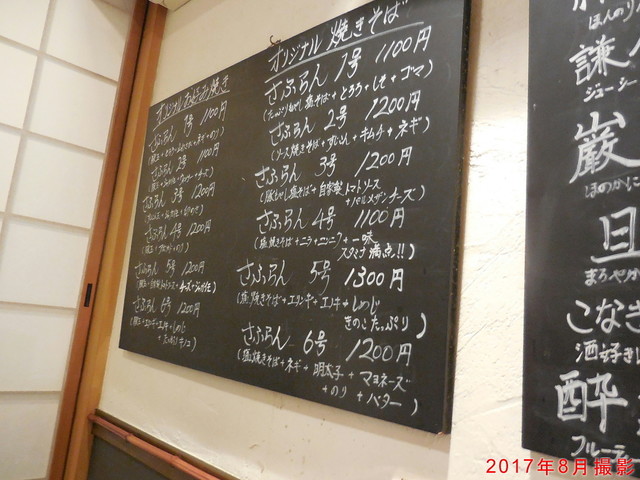 オリジナル お好み焼き
さふらん 1号 1100円
さふらん 2号 1100円
さふらん 3号 1200円
さふらん 4号 1200円
さふらん 5号 1200円
さふらん 6号 1200円
オリジナル 焼きそば
さふらん 1号 1100円
塩焼きそば + とろろ + しそ + ゴマ)
さふらん 2号 1200円
(ソース焼きそば + すじこん + キムチ + ネギ)
さふらん 3号 1200円
(豚もやし塩焼そば + 自家製トマトソース
+ パルメザンチーズ)
さふらん 4号 1100円
(塩焼きそば + ニラ + ニンニク + 一味
スタミナ満点!!)
さふらん 5号 1300円
(塩焼きそば + エリンギ + エノキ + しめじ
きのこたっぷり)
さふらん 6号 1200円
(塩焼きそば + ネギ + 明太子 + マヨネーズ
+ のり + バター)
ほんのり
謙
ジューシー
巌
ほのかに
旦
まろやか
こなき
酒好き
酔
フルーテ
2017年8月撮影